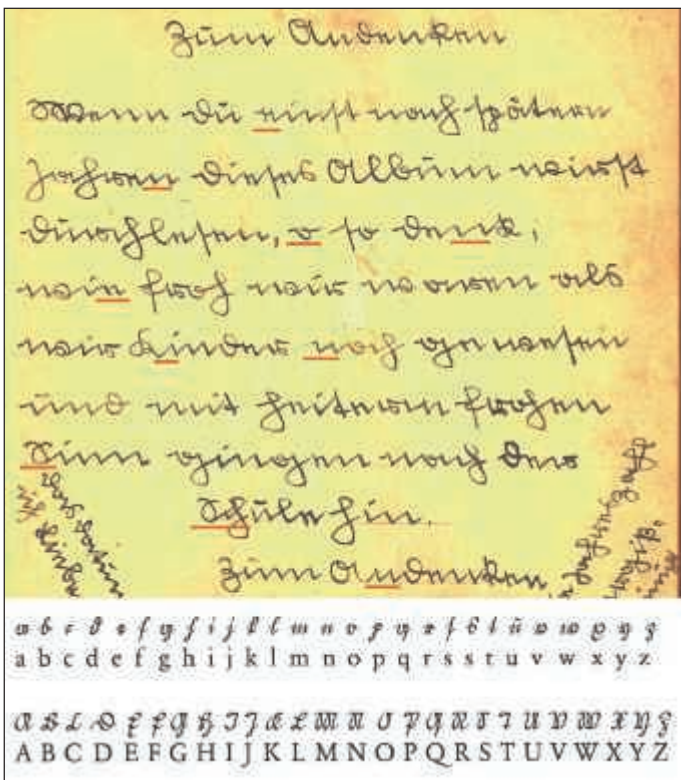 Zum Andenken
Wenn du einst nach spätern
Jahren dieses Album wirst
durchlesen, o so denk,
wie froh wir waren als
wir Kinder noch gewesen
und mit heiterm frohen
Sinn gingen nach der
Schule hin.
Zum Andenken
Das Datum
ich liebe
Jahreszahl
a b c d e f g h i j k l m n o p q r s s t u v w x y z
a b c d e f g h i j k l m n o p q r s s t u v w x y z
A B C D E F G H I J K L M N O P Q R S T U V W X Y Z
A B C D E F G H I J K L M N O P Q R S T U V W X Y Z